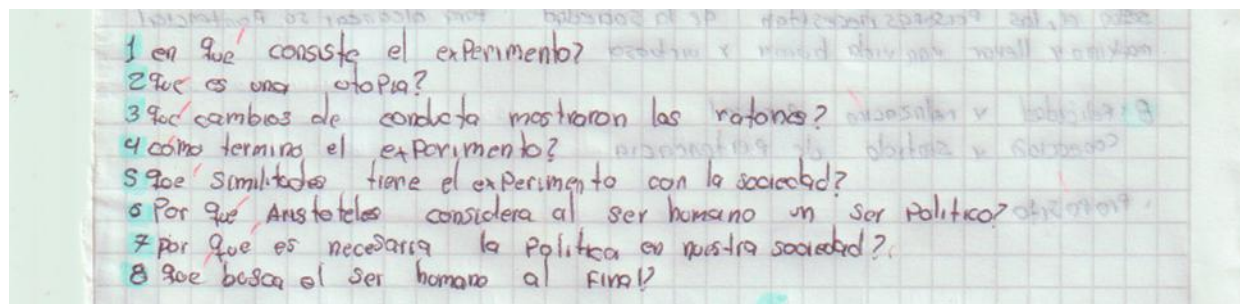 1 en qué consiste el experimento?
2 que es una utopia?
3 qué cambios de conducta mostraron los ratones?
4 cómo termino el experimento?
5 que similitudes tiene el experimento con la sociedad?
6 Por qué Aristoteles considera al ser humano un ser politico?
7 por qué es necesaria la politica en nuestra sociedad?
8 que busca el ser humano al final?